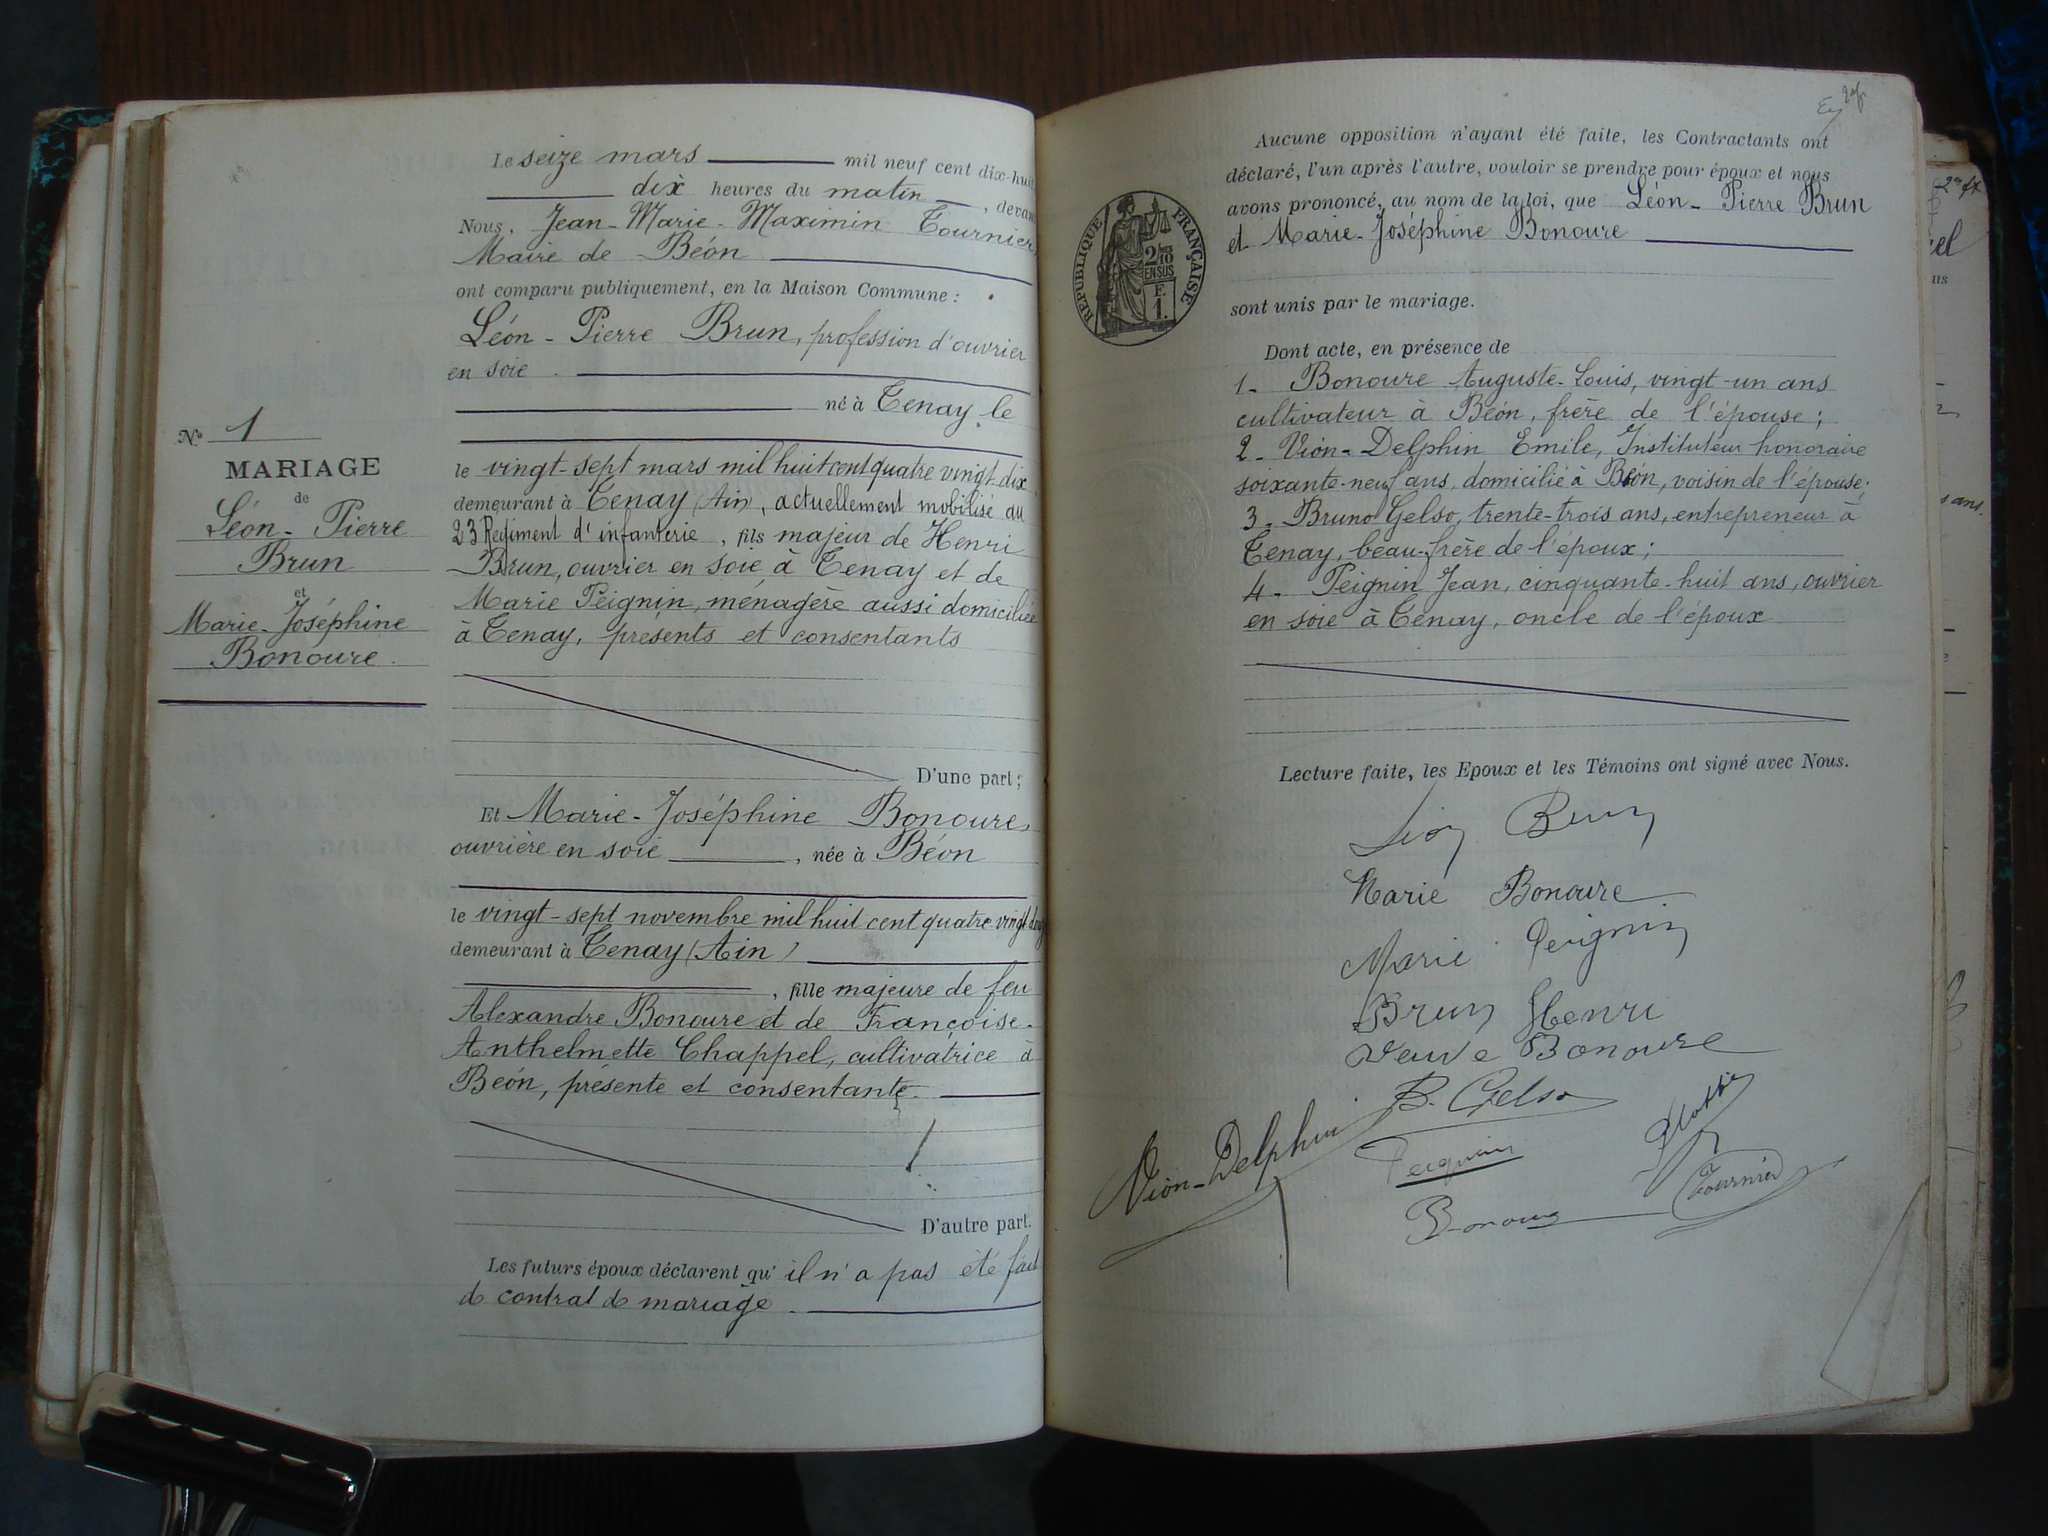 Nº 1
MARIAGE
de
Léon - Pierre
Brun
et
Marie-Joséphine
Bonoure.
Le seize mars mil neuf cent dix-huit
dix heures du matin, devant
Nous, Jean-Marie-Maximin Tournier
Maire de Béon
ont comparu publiquement, en la Maison Commune :
Léon - Pierre Brun, profession d'ouvrier
en soie.
né à Tenay, le
le vingt-sept mars mil huit cent quatre vingt-dix
demeurant à Tenay (Ain), actuellement mobilisé au
23 Régiment d'infanterie, fils majeur de Henri
Brun, ouvrier en soie à Tenay et de
Marie Peignin, ménagère aussi domiciliée
à Tenay, présents et consentants
D'une part ;
Et Marie-Joséphine Bonoure,
ouvrière en soie, née à Béon
le vingt-sept novembre mil huit cent quatre vingt
demeurant à Tenay (Ain)
, fille majeure de feu
Alexandre Bonoure et de Françoise-
Anthelmette Chappel, cultivatrice à
Béon, présente et consentante.
D'autre part.
Les futurs époux déclarent qu'il n'a pas été fait
de contrat de mariage.
Aucune opposition n'ayant été faite, les Contractants ont
déclaré, l'un après l'autre, vouloir se prendre pour époux et nous
avons prononcé, au nom de la loi, que Léon - Pierre Brun
et Marie-Joséphine Bonoure
sont unis par le mariage.
RÉPUBLIQUE FRANÇAISE
2/10
EN SUS
F.
1.
Dont acte, en présence de
1- Bonoure Auguste-Louis, vingt-un ans
cultivateur à Béon, frère de l'épouse ;
2- Vion-Delphin Emile, Instituteur honoraire
soixante-neuf ans, domicilié à Béon, voisin de l'épouse ;
3- Bruno Gelso, trente-trois ans, entrepreneur à
Tenay, beau-frère de l'époux ;
4- Peignin Jean, cinquante-huit ans, ouvrier
en soie à Tenay, oncle de l'époux
Lecture faite, les Epoux et les Témoins ont signé avec Nous.
Léon Brun
Marie Bonoure
Marie Peignin
Brun Henri
Veuve Bonoure
B. Gelso
Vion-Delphin
Peignin
Tournier
Bonoure
ans.